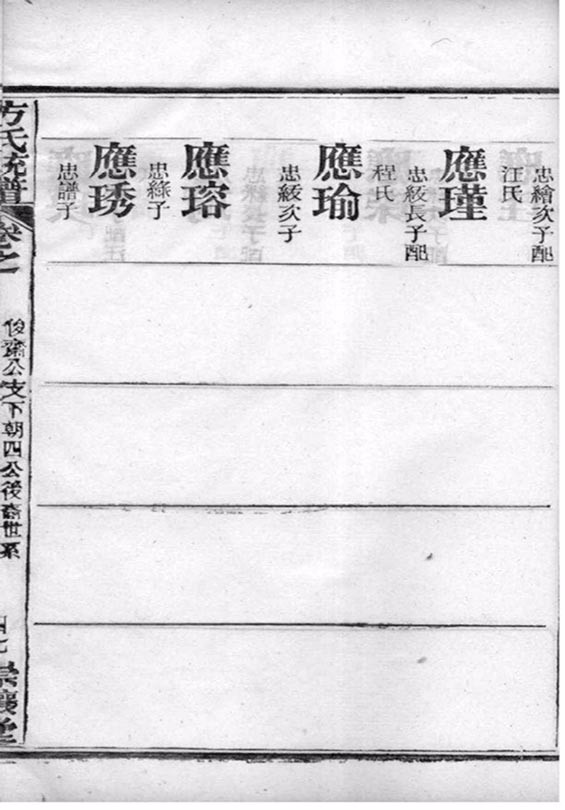 忠繪次子配
汪氏
應瑾
忠綬長子配
程氏
應瑜
忠綬次子
應瑢
忠縧子
應琇
忠譜子
方氏統譜
卷之
俊齋公支下朝四公後裔世系
四七
崇讓堂